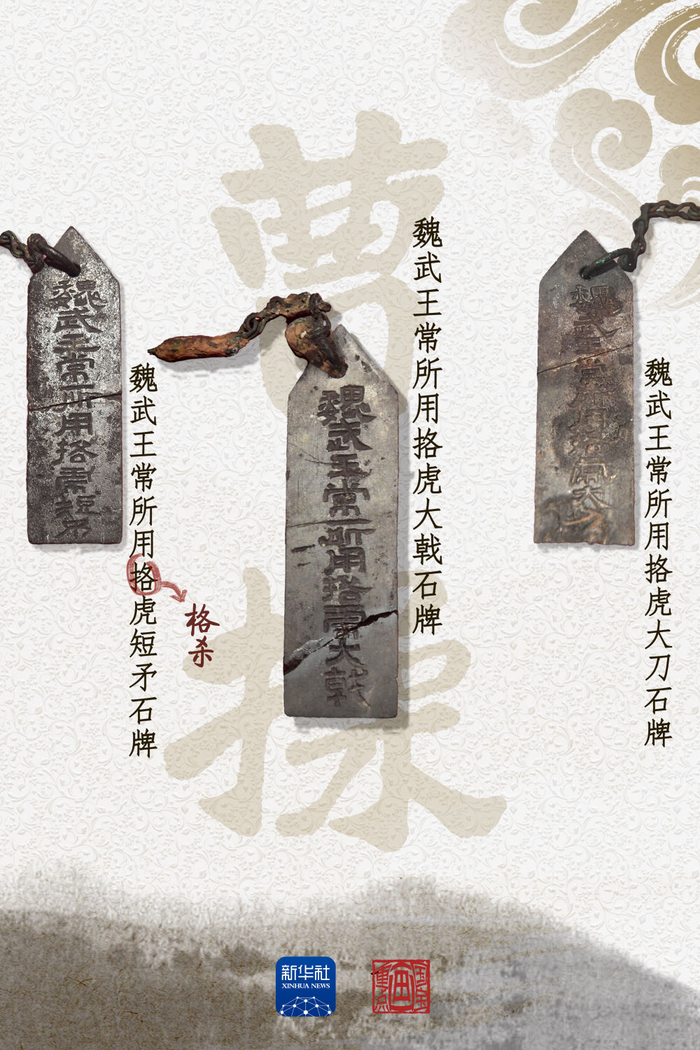 曹操
魏武王常所用挌虎大戟石牌
魏武王常所用挌虎短矛石牌
格杀
魏武王常所用挌虎大刀石牌
魏武王常所用挌虎短矛
魏武王常所用挌虎大戟
魏武王常所用挌虎大
新华社
XINHUA NEWS